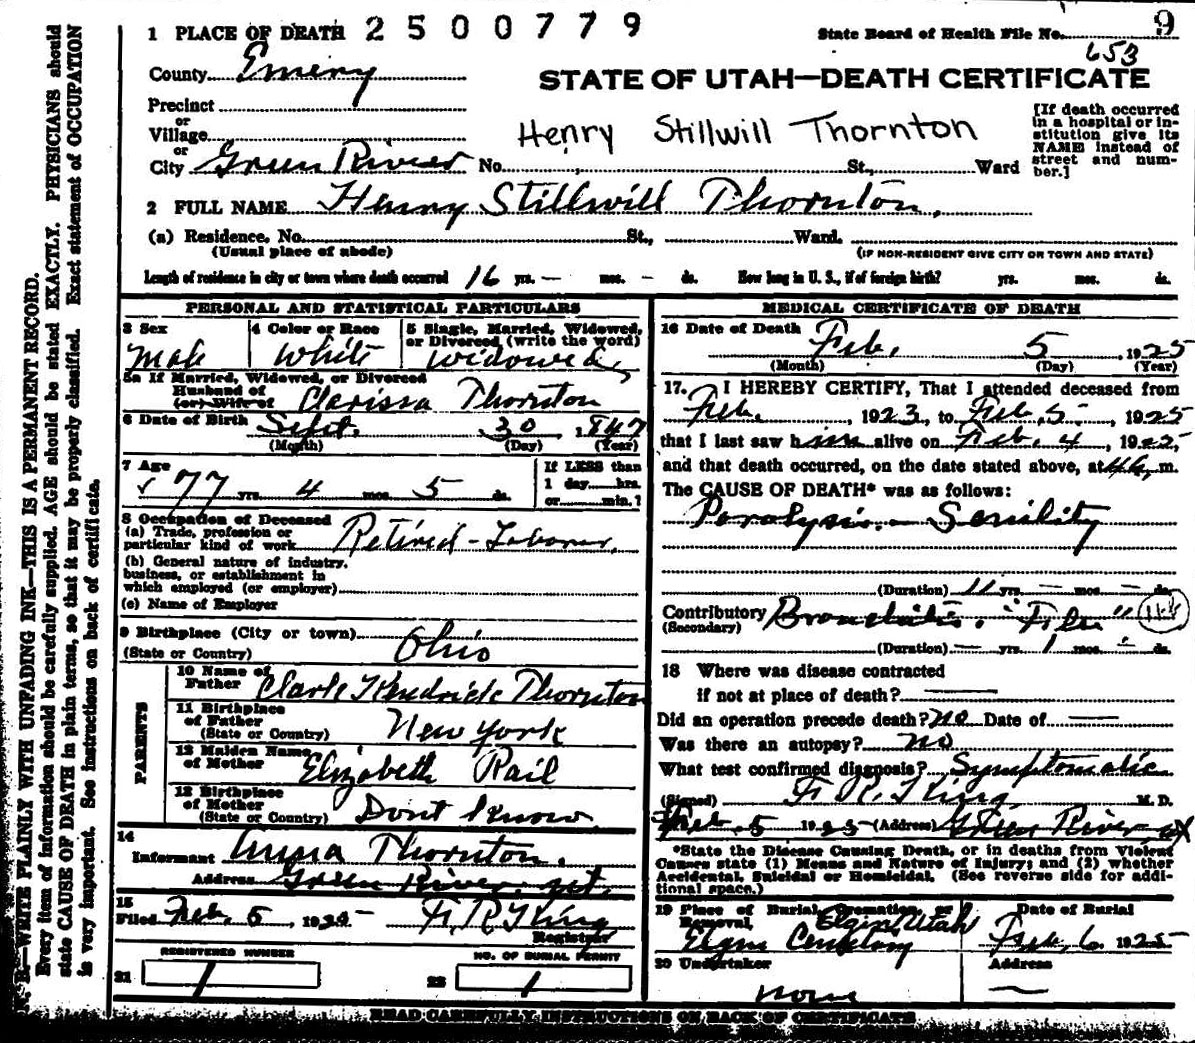 1 PLACE OF DEATH 2500779
State Board of Health File No. 9
653
County Emery
STATE OF UTAH—DEATH CERTIFICATE
Precinct
or
Village
or
City Green River No. St., Ward
Henry Stillwill Thornton
[If death occurred
in a hospital or in-
stitution give its
NAME instead of
street and num-
ber.]
2 FULL NAME Henry Stillwill Thornton.
(a) Residence, No. St., Ward.
(Usual place of abode) (IF NON-RESIDENT GIVE CITY OR TOWN AND STATE)
Length of residence in city or town where death occurred 16 yrs. — mos. — ds. How long in U. S., if of foreign birth? yrs. mos. ds.
PERSONAL AND STATISTICAL PARTICULARS
3 Sex
Male
4 Color or Race
White
5 Single, Married, Widowed,
or Divorced (write the word)
Widowed
5a If Married, Widowed, or Divorced
Husband of
(or) Wife of Clarissa Thornton
6 Date of Birth Sept. 30, 1847
(Month) (Day) (Year)
7 Age
77 yrs. 4 mos. 5 ds.
If LESS than
1 day hrs.
or min.?
8 Occupation of Deceased
(a) Trade, profession or
particular kind of work Retired - Laborer
(b) General nature of industry,
business, or establishment in
which employed (or employer)
(c) Name of Employer
9 Birthplace (City or town)
(State or Country) Ohio
PARENTS
10 Name of
Father Clark Kendrick Thornton
11 Birthplace
of Father
(State or Country) New York
12 Maiden Name
of Mother Elizabeth Rail
13 Birthplace
of Mother
(State or Country) Dont Know
14
Informant Anna Thornton.
Address Green River, Ut.
15
Filed Feb. 5 1925 F. R. King
Registrar
REGISTERED NUMBER
21 1
NO. OF BURIAL PERMIT
22 1
MEDICAL CERTIFICATE OF DEATH
16 Date of Death Feb. 5, 1925
(Month) (Day) (Year)
17. I HEREBY CERTIFY, That I attended deceased from
Feb. , 1923, to Feb. 5 , 1925
that I last saw him alive on Feb. 4 , 1925
and that death occurred, on the date stated above, at m.
The CAUSE OF DEATH* was as follows:
Paralysis. - Senility
(Duration) 11 yrs. — mos. — ds.
Contributory Bronchitis. "Flu"
(Secondary)
(Duration) — yrs. 1 mos. — ds.
18 Where was disease contracted
if not at place of death? —
Did an operation precede death? no Date of —
Was there an autopsy? no
What test confirmed diagnosis? Symptomatic
(Signed) F. R. King M. D.
Feb. 5 1925 (Address) Green River Ut
*State the Disease Causing Death, or in deaths from Violent
Causes state (1) Means and Nature of Injury; and (2) whether
Accidental, Suicidal or Homicidal. (See reverse side for addi-
tional space.)
19 Place of Burial, Cremation, or
Removal, Elgin, Utah
Elgin Cemetery
Date of Burial
Feb. 6 1925
20 Undertaker
none
Address
—
READ CAREFULLY INSTRUCTIONS ON BACK OF CERTIFICATE
N. B.—WRITE PLAINLY WITH UNFADING INK—THIS IS A PERMANENT RECORD.
Every item of information should be carefully supplied. AGE should be stated EXACTLY. PHYSICIANS should
state CAUSE OF DEATH in plain terms, so that it may be properly classified. Exact statement of OCCUPATION
is very important. See instructions on back of certificate.